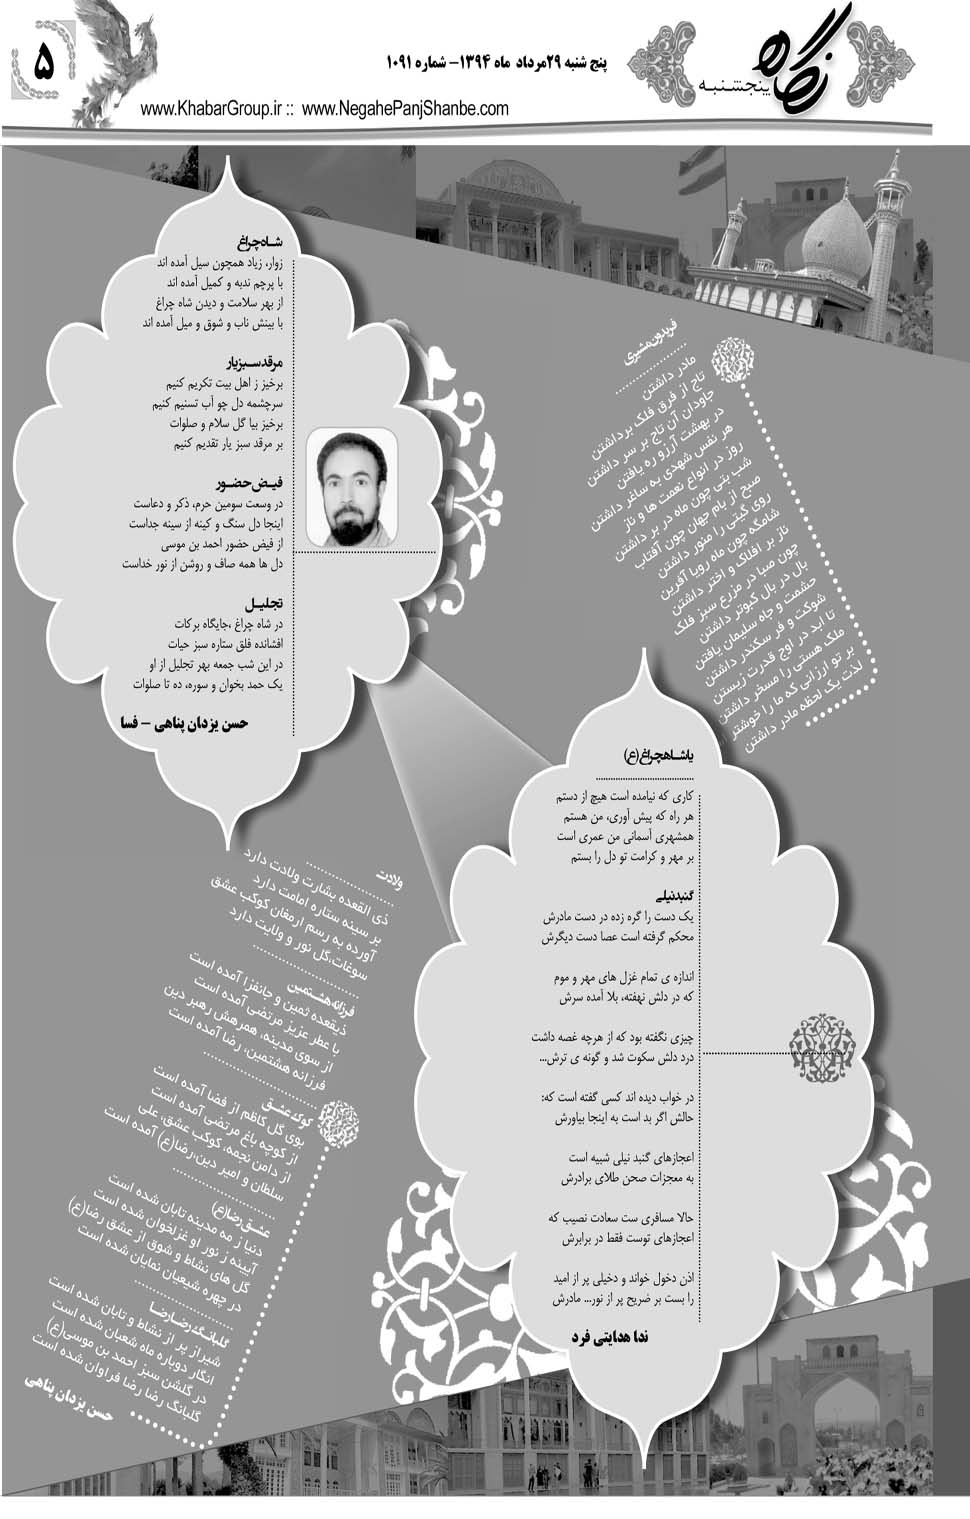 نگاه
پنجشنبه
پنج شنبه ۲۹مرداد ماه ۱۳۹۴- شماره ۱۰۹۱
۵
www.KhabarGroup.ir :: www.NegahePanjShanbe.com
فریدون مشیری
مادر داشتن
تاج از فرق فلک برداشتن
جاودان آن تاج بر سر داشتن
در بهشت آرزو ره یافتن
هر نفس شهدی به ساغر داشتن
روز در انواع نعمت ها و ناز
شب بتی چون ماه در بر داشتن
صبح از بام جهان چون آفتاب
روی گیتی را منور داشتن
شامگه چون ماه رویا آفرین
ناز بر افلاک و اختر داشتن
چون صبا در مزرع سبز فلک
بال در بال کبوتر داشتن
حشمت و جاه سلیمان یافتن
شوکت و فر سکندر داشتن
تا ابد در اوج قدرت زیستن
ملک هستی را مسخر داشتن
بر تو ارزانی که ما را خوشتر
لذت یک لحظه مادر داشتن
شاه‌چراغ
زوار، زیاد همچون سیل آمده اند
با پرچم ندبه و کمیل آمده اند
از بهر سلامت و دیدن شاه چراغ
با بینش ناب و شوق و میل آمده اند
مرقد سبز یار
برخیز ز اهل بیت تکریم کنیم
سرچشمه دل چو آب تسنیم کنیم
برخیز بیا گل سلام و صلوات
بر مرقد سبز یار تقدیم کنیم
فیض حضور
در وسعت سومین حرم، ذکر و دعاست
اینجا دل سنگ و کینه از سینه جداست
از فیض حضور احمد بن موسی
دل ها همه صاف و روشن از نور خداست
تجلیل
در شاه چراغ ،جایگاه برکات
افشانده فلق ستاره سبز حیات
در این شب جمعه بهر تجلیل از او
یک حمد بخوان و سوره، ده تا صلوات
حسن یزدان پناهی - فسا
یاشاهچراغ(ع)
کاری که نیامده است هیچ از دستم
هر راه که پیش آوری، من هستم
همشهری آسمانی من عمری است
بر مهر و کرامت تو دل را بستم
گنبدنیلی
یک دست را گره زده در دست مادرش
محکم گرفته است عصا دست دیگرش
اندازه ی تمام غزل های مهر و موم
که در دلش نهفته، بلا آمده سرش
چیزی نگفته بود که از هرچه غصه داشت
درد دلش سکوت شد و گونه ی ترش...
در خواب دیده اند کسی گفته است که:
حالش اگر بد است به اینجا بیاورش
اعجازهای گنبد نیلی شبیه است
به معجزات صحن طلای برادرش
حالا مسافری ست سعادت نصیب که
اعجازهای توست فقط در برابرش
اذن دخول خواند و دخیلی پر از امید
را بست بر ضریح پر از نور... مادرش
ندا هدایتی فرد
ولادت
ذی القعده بشارت ولادت دارد
بر سینه ستاره امامت دارد
آورده به رسم ارمغان کوکب عشق
سوغات،گل نور و ولایت دارد
فرزانه هشتمین
ذیقعده ثمین و جانفزا آمده است
با عطر عزیز مرتضی آمده است
از سوی مدینه، همرهش رهبر دین
فرزانه هشتمین، رضا آمده است
کوکب عشق
بوی گل کاظم از فضا آمده است
از کوچه باغ مرتضی آمده است
از دامن نجمه، کوکب عشق، علی
سلطان و امیر دین،رضا(ع) آمده است
عشق رضا(ع)
دنیا ز مه مدینه تابان شده است
آیینه ز نور او غزلخوان شده است
گل های نشاط و شوق از عشق رضا(ع)
در چهره شیعیان نمایان شده است
گلبانگ رضا رضا
شیراز پر از نشاط و تابان شده است
انگار دوباره ماه شعبان شده است
در گلشن سبز احمد بن موسی(ع)
گلبانگ رضا رضا فراوان شده است
حسن یزدان پناهی